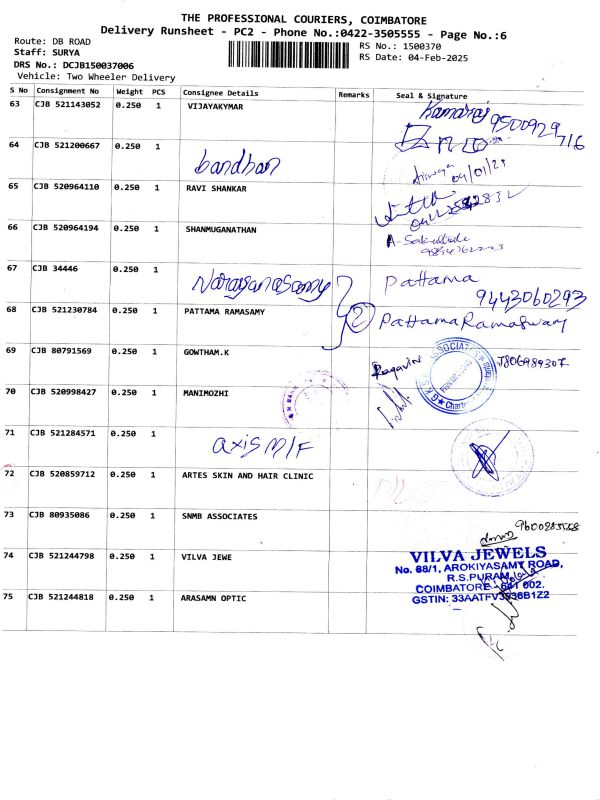 THE PROFESSIONAL COURIERS, COIMBATORE
Delivery Runsheet - PC2 - Phone No.:0422-3505555 - Page No.:6
Route: DB ROAD
RS No.: 1500370
Staff: SURYA
RS Date: 04-Feb-2025
DRS No.: DCJB150037006
Vehicle: Two Wheeler Delivery
S No Consignment No Weight PCS Consignee Details Remarks Seal & Signature
63 CJB 521143052 0.250 1 VIJAYAKYMAR
Kamaraj
9500929716
64 CJB 521200667 0.250 1
bandhan
65 CJB 520964110 0.250 1 RAVI SHANKAR
66 CJB 520964194 0.250 1 SHANMUGANATHAN
67 CJB 34446 0.250 1
Narayanasamy
Pattama
9443060293
68 CJB 521230784 0.250 1 PATTAMA RAMASAMY
2
Pattama Ramaswamy
69 CJB 80791569 0.250 1 GOWTHAM.K
70 CJB 520998427 0.250 1 MANIMOZHI
71 CJB 521284571 0.250 1
axis M/F
72 CJB 520859712 0.250 1 ARTES SKIN AND HAIR CLINIC
73 CJB 80935086 0.250 1 SNMB ASSOCIATES
74 CJB 521244798 0.250 1 VILVA JEWE
VILVA JEWELS
No. 68/1, AROKIYASAMY ROAD,
R.S.PURAM,
COIMBATORE - 641 002.
75 CJB 521244818 0.250 1 ARASAMN OPTIC